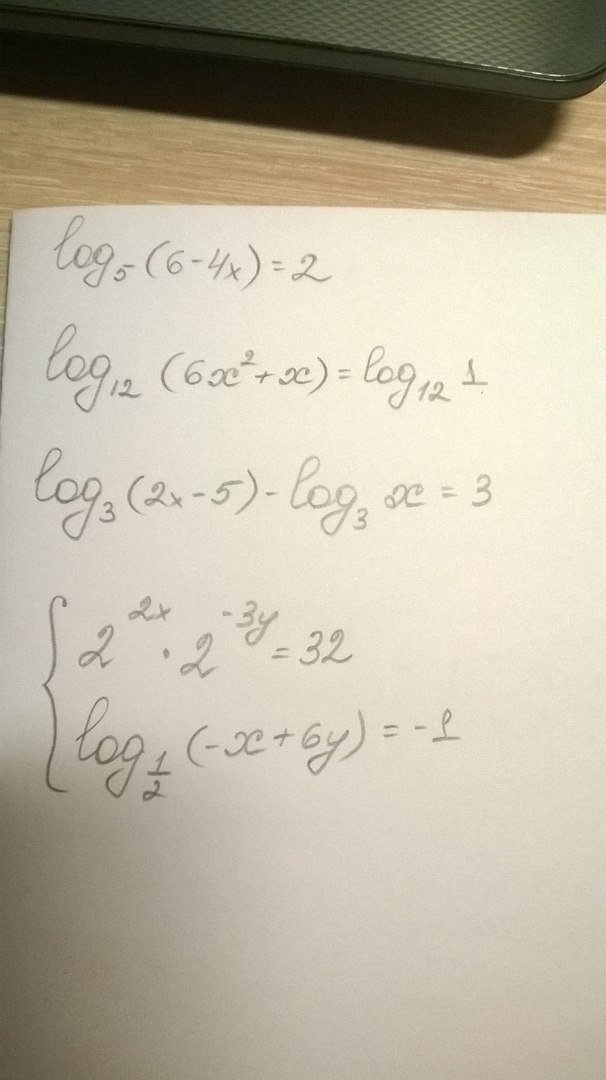 log₅(6-4x)=2
log₁₂(6x²+x)=log₁₂1
log₃(2x-5)-log₃x=3
{2²ˣ·2⁻³ʸ=32
log_{1/2}(-x+6y)=-1